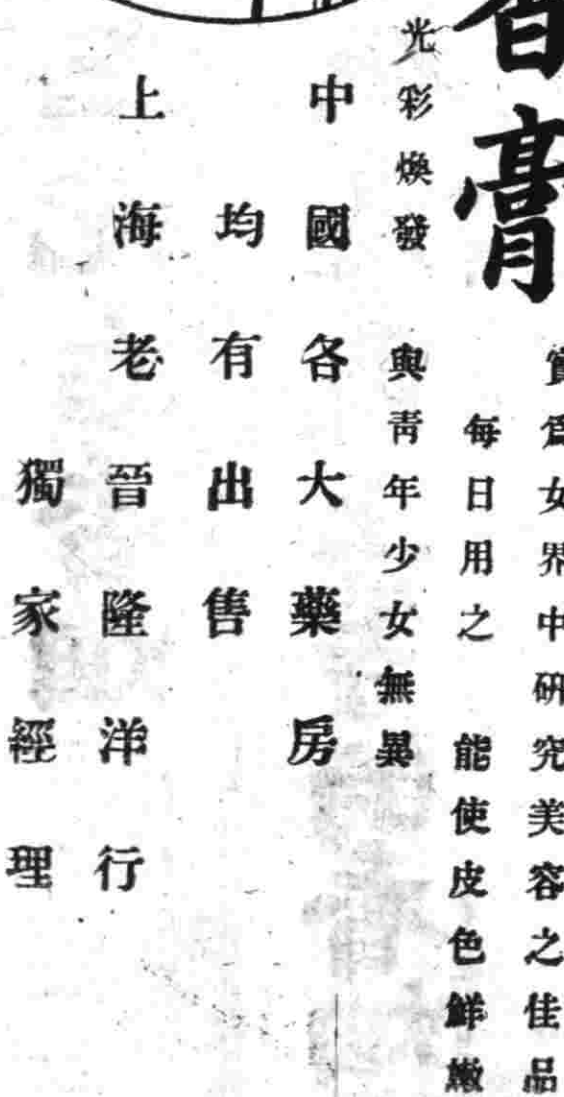 膏
實爲女界中研究美容之佳品
每日用之 能使皮色鮮嫩
光彩煥發 與青年少女無異
中國各大藥房
均有出售
上海老晉隆洋行
獨家經理